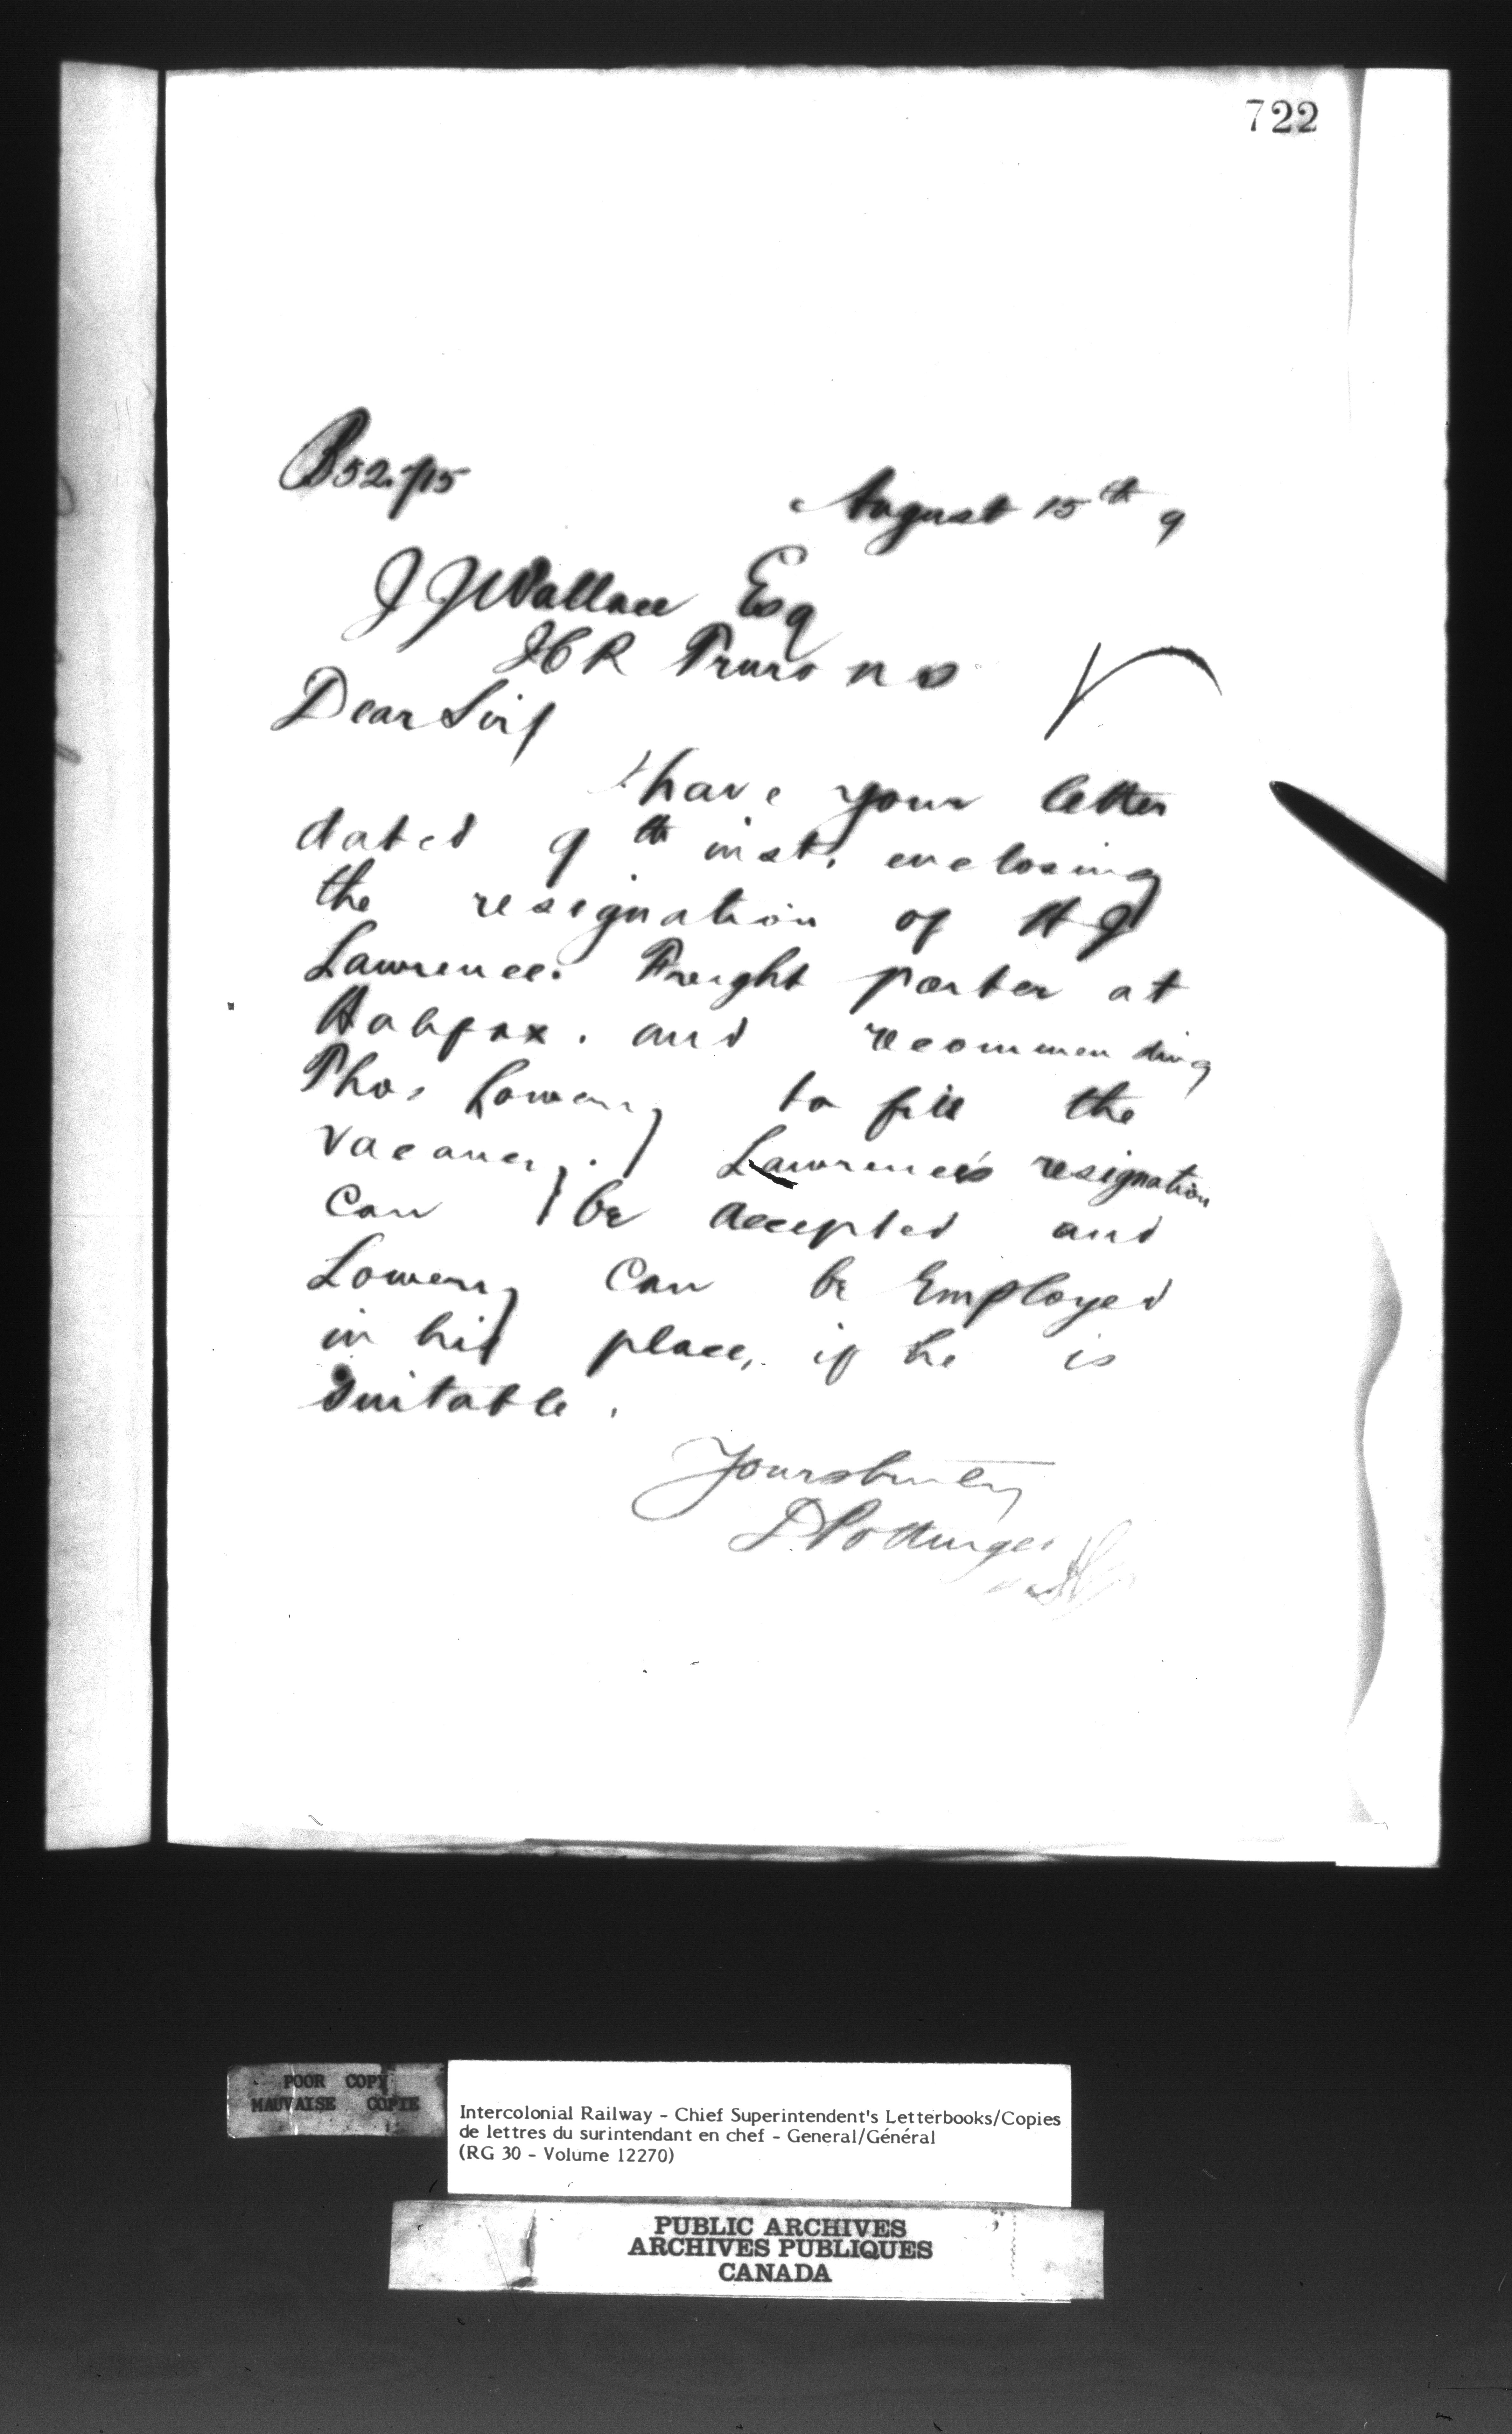 722
B52.715
August 15th 9
J J Wallace Esq
ICR Truro N S
Dear Sir/
I have your letter
dated 9th inst. enclosing
the resignation of H J
Lawrence. Freight porter at
Halifax. and recommending
Thos Lowery to fill the
vacancy. Lawrence's resignation
can be accepted and
Lowery can be Employed
in his place, if he is
Suitable.
Yours truly
D Pottinger
POOR COPY
MAUVAISE COPIE
Intercolonial Railway - Chief Superintendent's Letterbooks/Copies
de lettres du surintendant en chef - General/Général
(RG 30 - Volume 12270)
PUBLIC ARCHIVES
ARCHIVES PUBLIQUES
CANADA